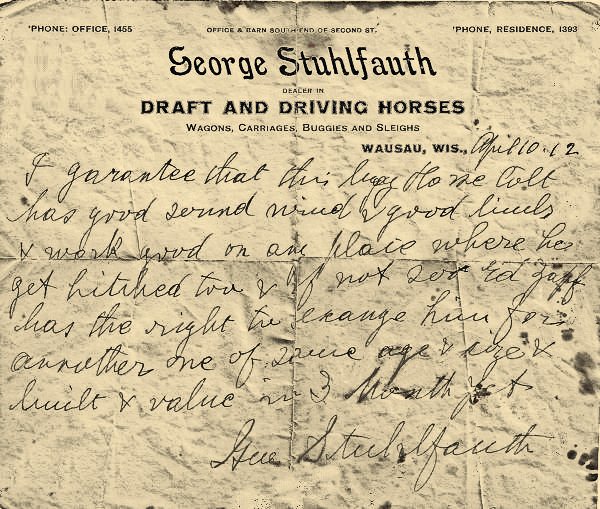 'PHONE: OFFICE, 1455
OFFICE & BARN SOUTH END OF SECOND ST.
'PHONE, RESIDENCE, 1393
George Stuhlfauth
DEALER IN
DRAFT AND DRIVING HORSES
WAGONS, CARRIAGES, BUGGIES AND SLEIGHS
WAUSAU, WIS., April 10-12
I garantee that this Horse Colt
has good sound wind & good limbs
& work good on any place where he
get hitched too & if not so Ed Zapf
has the right to exange him for
annother one of same age & size &
built & value in 3 Month
Geo Stuhlfauth